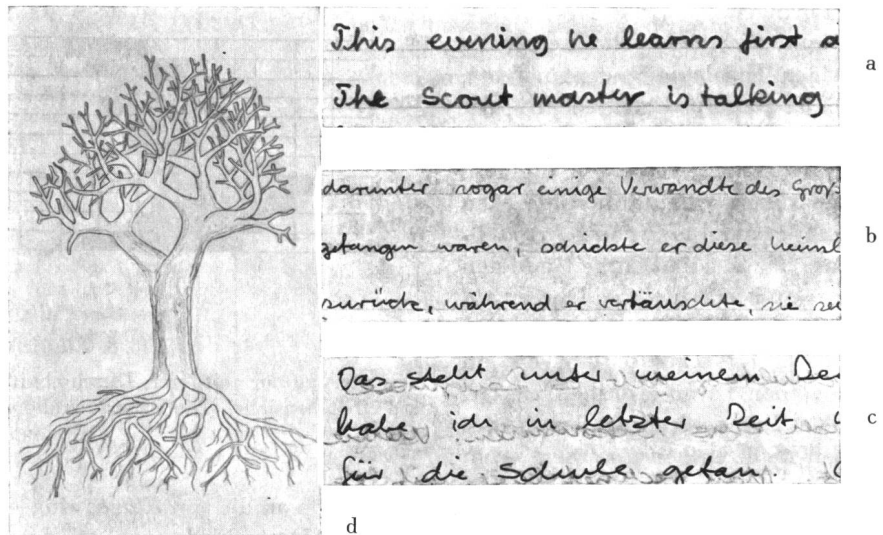 This evening he learns first a
The Scout master is talking
a
darunter sogar einige Verwandte des Groß
gefangen waren, schickte er diese heiml
b
zurück, während er vertäuschte, sie sei
Das steht unter meinem De
habe ich in letzter Zeit
c
für die Schule getan.
d